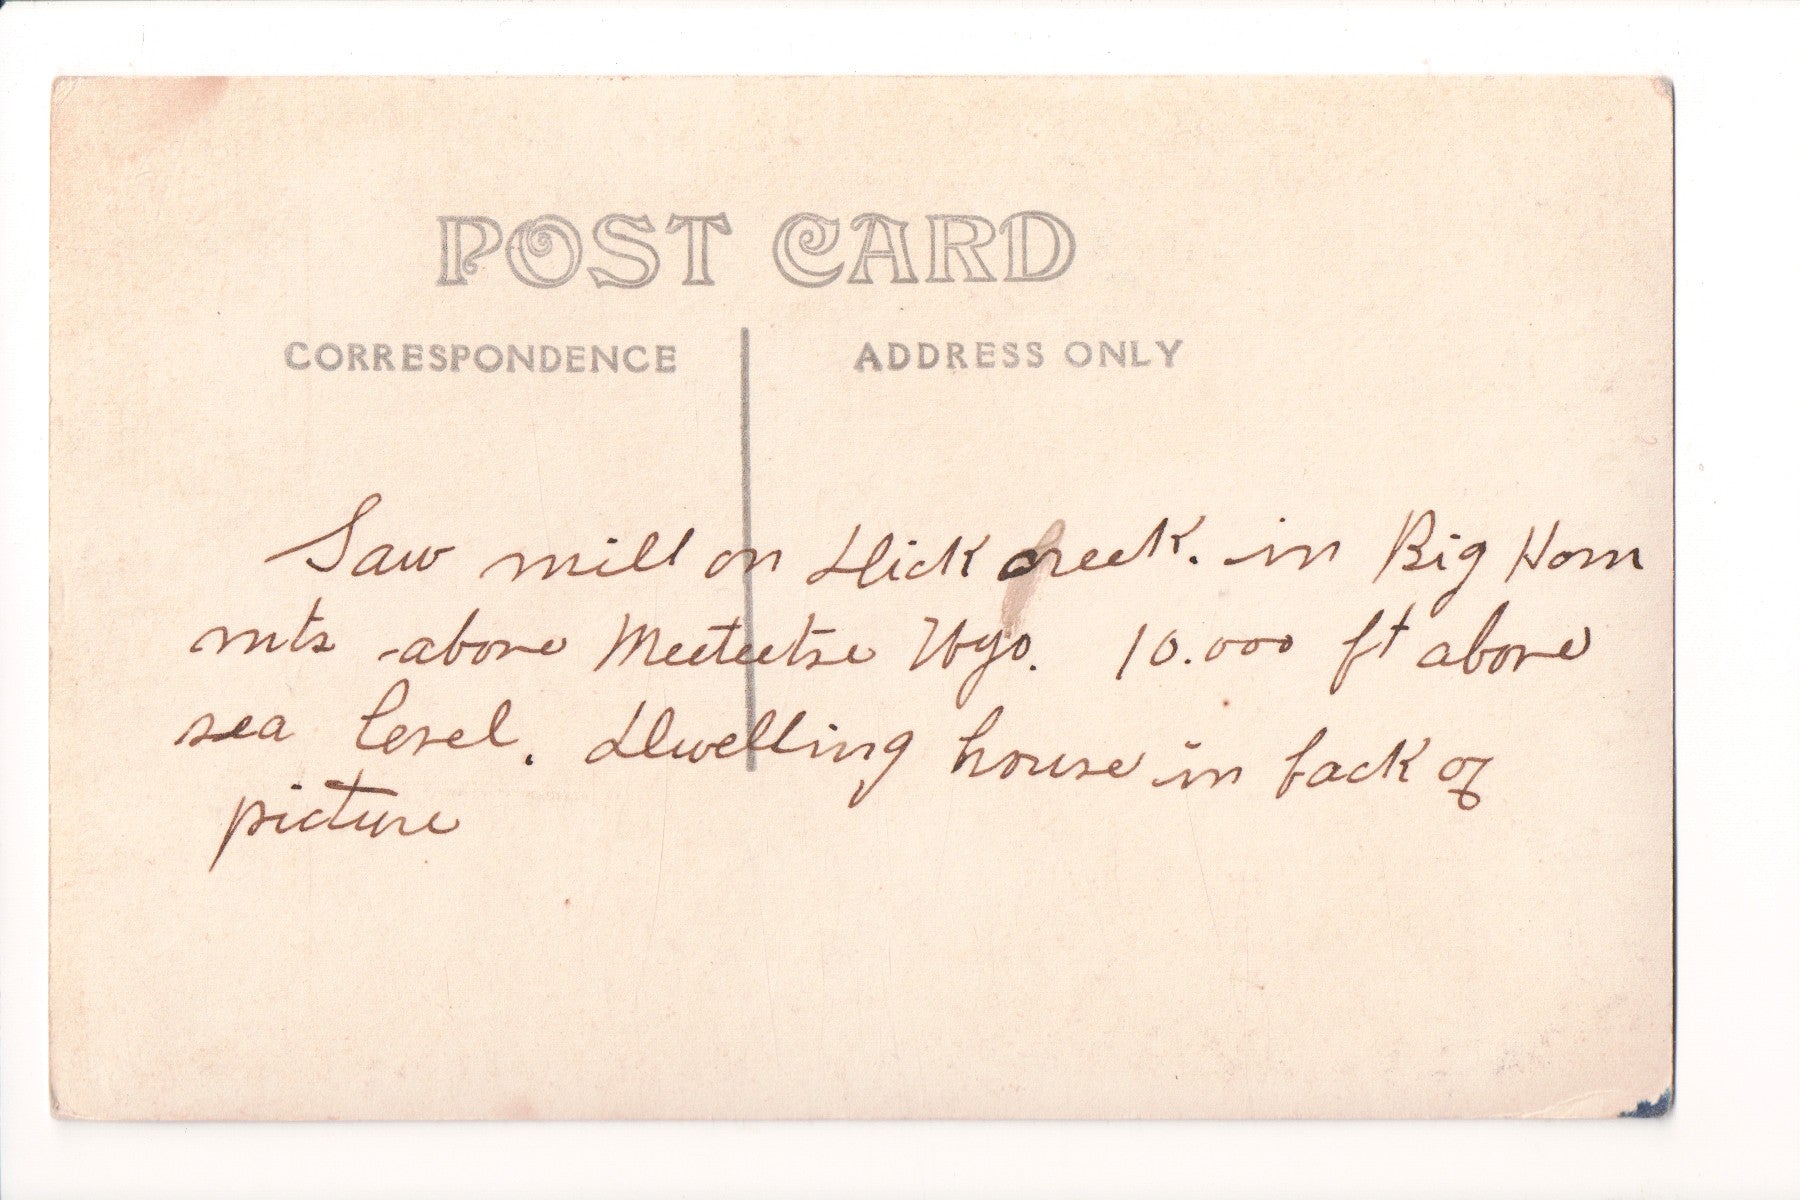 POST CARD
CORRESPONDENCE
ADDRESS ONLY
Saw mill on Dick creek. in Big Horn
mts above Meeteetse Wyo. 10.000 ft above
sea level. Dwelling house in back of
picture